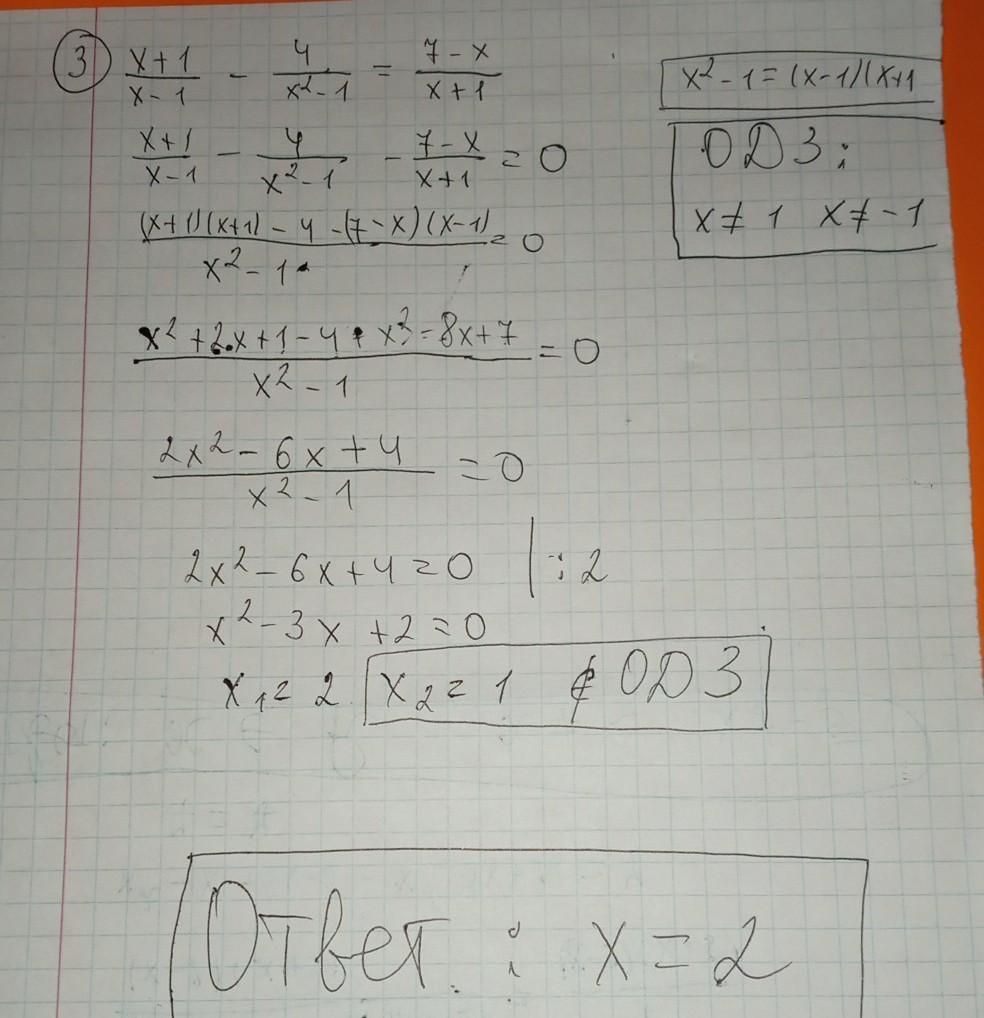 3 (x+1)/(x-1) - 4/(x²-1) = (7-x)/(x+1)
x²-1=(x-1)(x+1
(x+1)/(x-1) - 4/(x²-1) - (7-x)/(x+1) = 0
ОДЗ:
x≠1 x≠-1
((x+1)(x+1)-4-(7-x)(x-1))/(x²-1) = 0
(x²+2x+1-4+x²-8x+7)/(x²-1) = 0
(2x²-6x+4)/(x²-1) = 0
2x²-6x+4=0 |:2
x²-3x+2=0
x₁=2 x₂=1 ∉ ОДЗ
Ответ: x=2